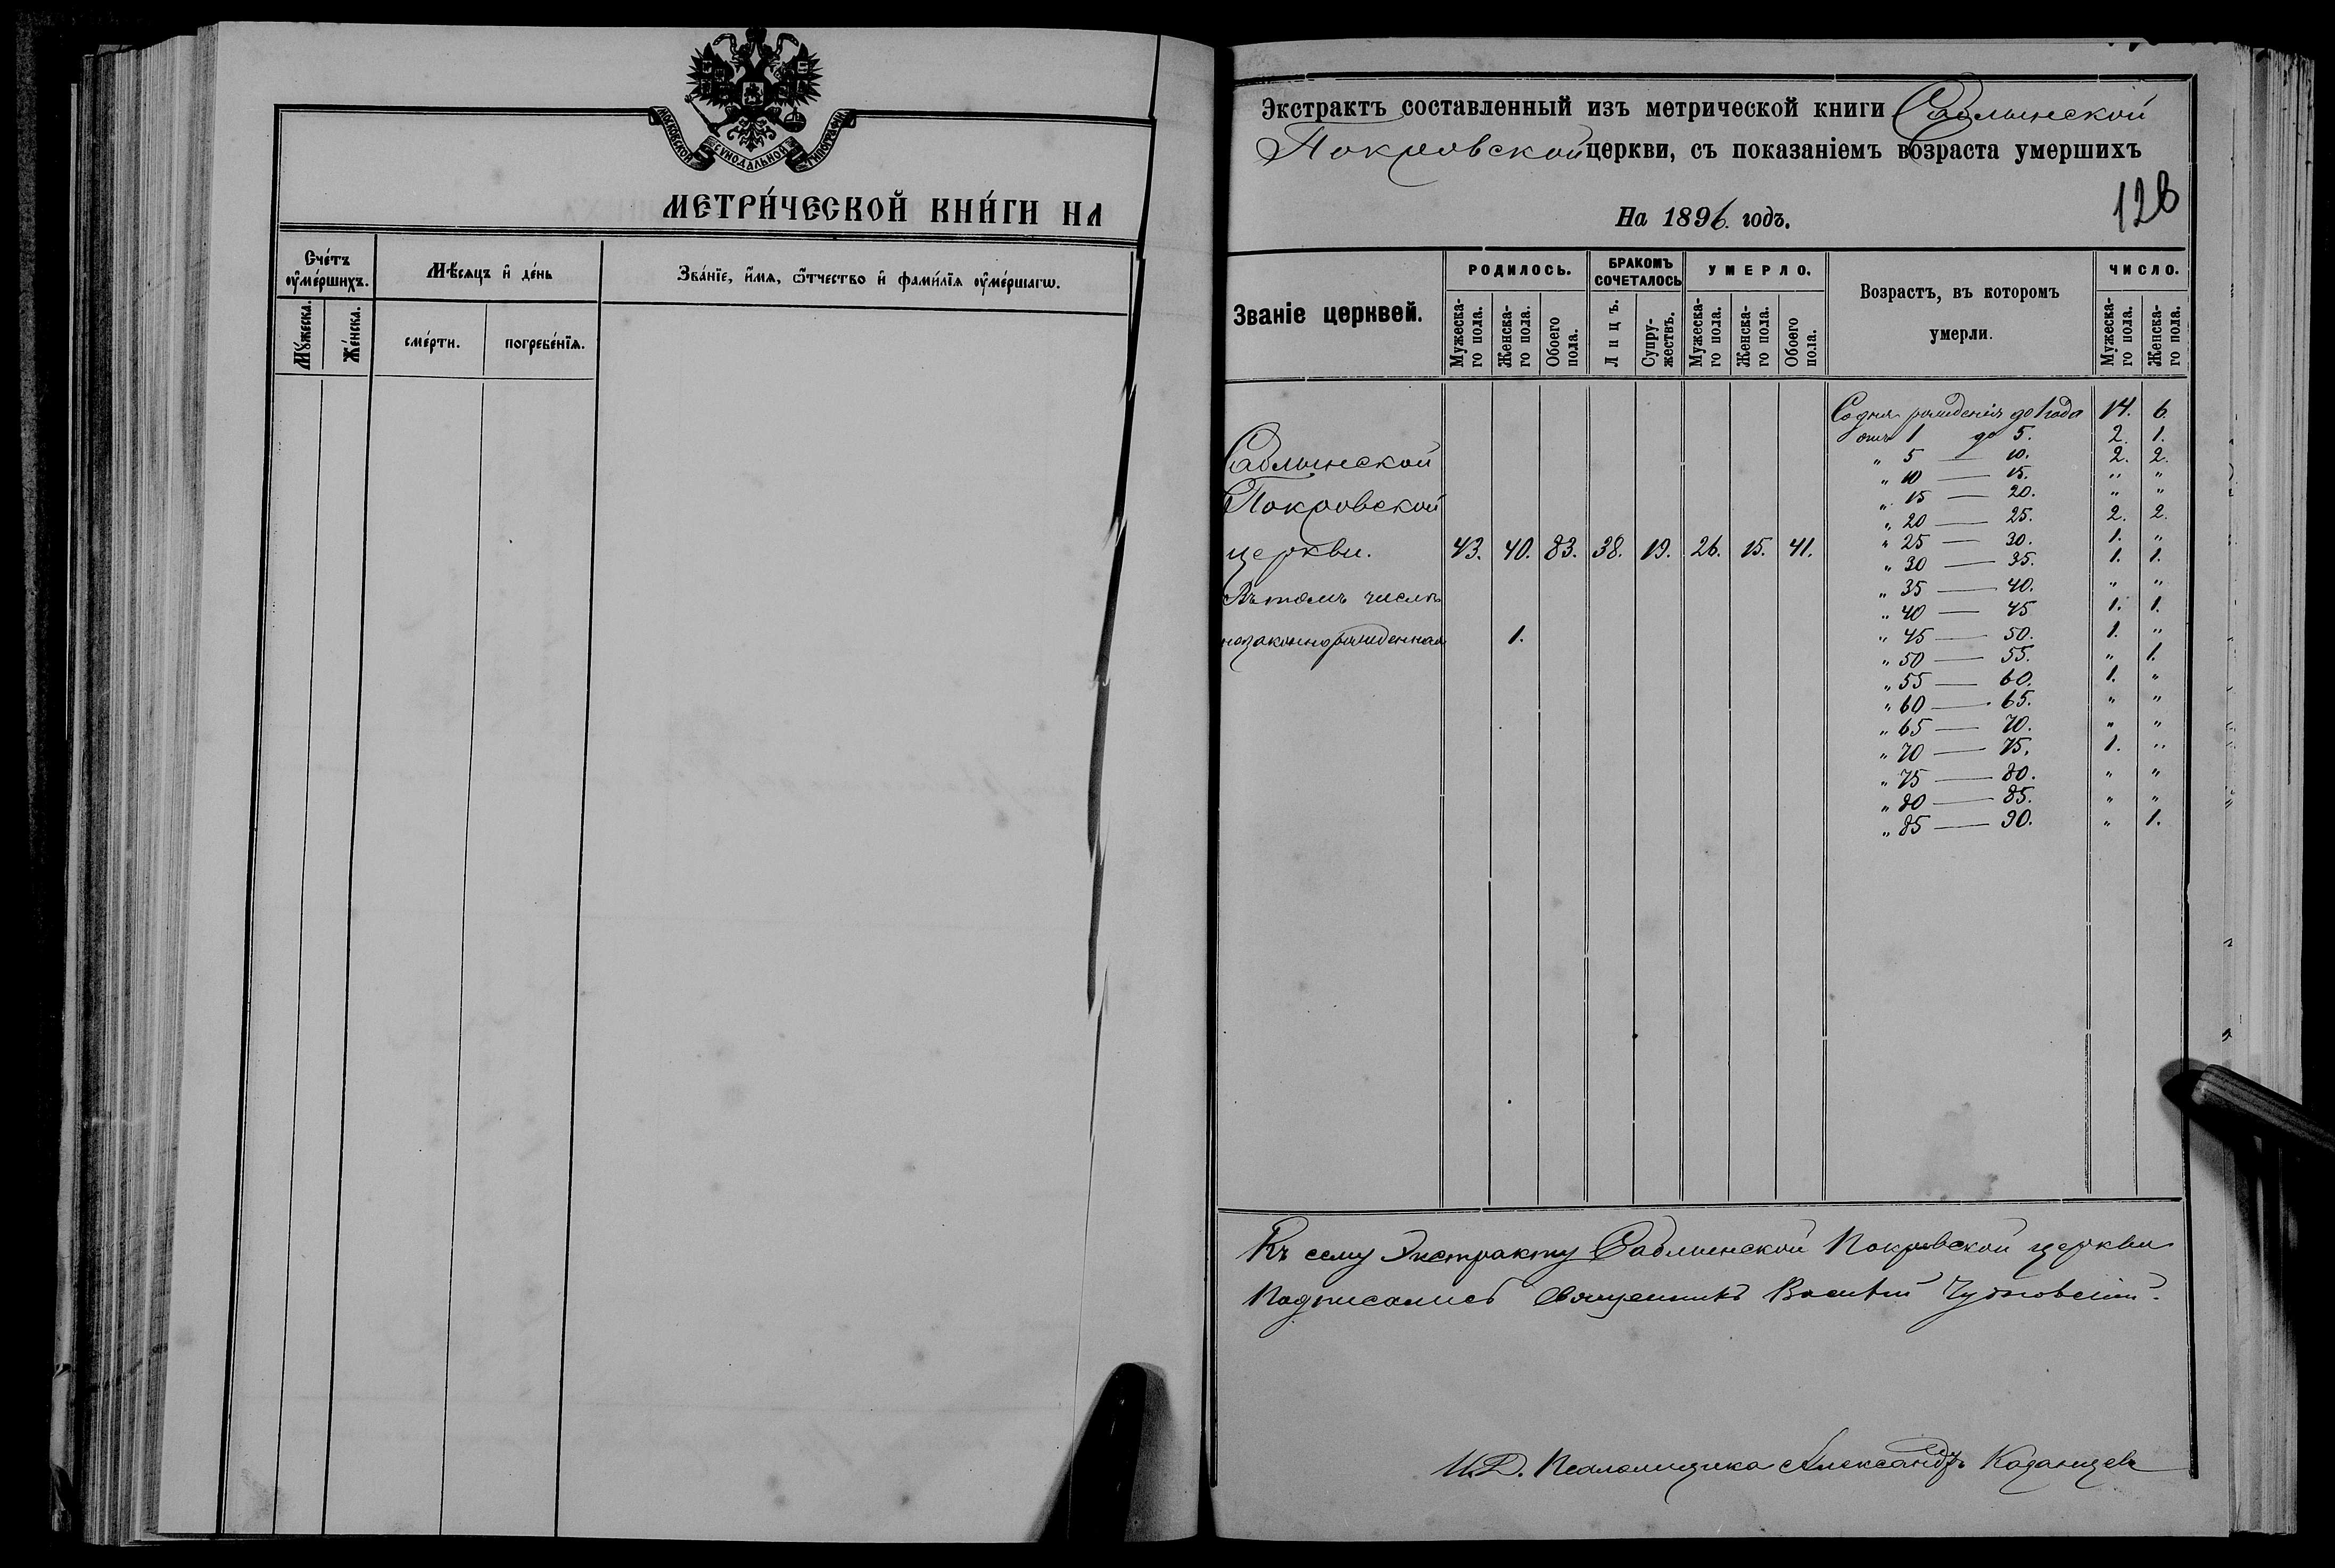 МОСКОВСКОЙ СѴНОДАЛЬНОЙ ТИПОГРАФІИ
МЕТРИ́ЧЕСКОЙ КНИ́ГИ НА
Сче́тъ ᲂу҆ме́ршихъ.
Мѣ́сяцъ и҆ де́нь
Зва́нїе, и҆́мѧ, ѻ҆́тчество и҆ фами́лїѧ ᲂу҆ме́ршагѡ.
Мꙋ́жеска.
Же́нска.
сме́рти.
погребе́нїѧ.
Экстрактъ составленный изъ метрической книги Саблынской
Покровской церкви, съ показаніемъ возраста умершихъ
126
На 1896. годъ.
Званіе церквей.
РОДИЛОСЬ.
БРАКОМЪ СОЧЕТАЛОСЬ
УМЕРЛО.
Возрастъ, въ которомъ умерли.
ЧИСЛО.
Мужеска-го пола.
Женска-го пола.
Обоего пола.
Лицъ.
Супру-жествъ.
Мужеска-го пола.
Женска-го пола.
Обоего пола.
Мужеска-го пола.
Женска-го пола.
Со дня рожденія до 1 года 14. 6.
отъ 1 до 5. 2. 1.
" 5 — 10. 2. 2.
" 10 — 15. " "
" 15 — 20. " "
" 20 — 25. 2. 2.
" 25 — 30. 1. "
" 30 — 35. 1. 1.
" 35 — 40. " "
" 40 — 45 1. 1.
" 45 — 50. 1. "
" 50 — 55. " 1.
" 55 — 60. 1. "
" 60 — 65. " "
" 65 — 70. " "
" 70 — 75. 1. "
" 75 — 80. " "
" 80 — 85. " "
" 85 — 90. " 1.
Саблынской
Покровской
церкви. 43. 40. 83. 38. 19. 26. 15. 41.
Въ томъ числѣ
незаконнорожденная 1.
Къ сему Экстракту Саблынской Покровской церкви
Подписались Священникъ
И. Д. Псаломщика Александръ Казанцевъ